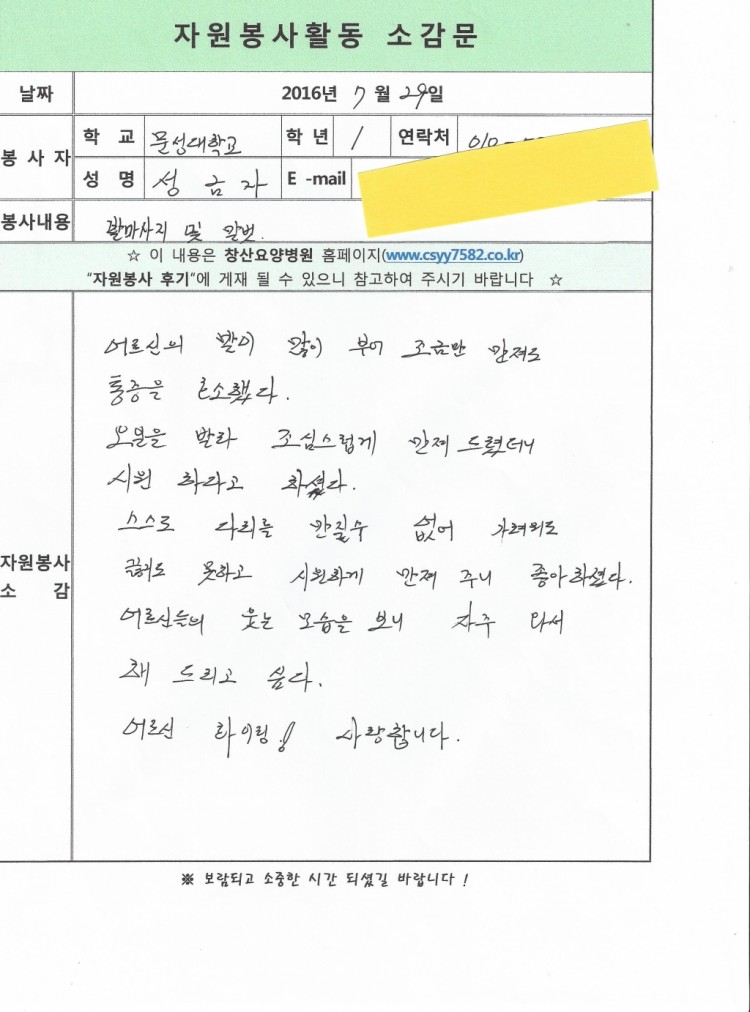 자원봉사활동 소감문
날짜 2016년 7월 29일
봉사자 학교 문성대학교 학년 1 연락처 010-
성명 성금자 E-mail
봉사내용 발마사지 및 말벗.
☆ 이 내용은 창산요양병원 홈페이지(www.csyy7582.co.kr)
"자원봉사 후기"에 게재 될 수 있으니 참고하여 주시기 바랍니다 ☆
자원봉사 소감
어르신의 발이 많이 부어 조금만 만져도
통증을 호소했다.
오일을 발라 조심스럽게 만져 드렸더니
시원 하라고 하셨다.
스스로 다리를 만질수 없어 가려워도
긁지도 못하고 시원하게 만져 주니 좋아하셨다.
어르신들의 웃는 모습을 보니 자주 와서
해 드리고 싶다.
어르신 화이링! 사랑합니다.
※ 보람되고 소중한 시간 되셨길 바랍니다!